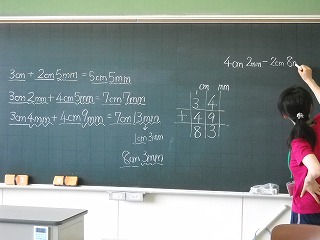 3cm + 2cm5mm = 5cm5mm
3cm2mm + 4cm5mm = 7cm7mm
3cm4mm + 4cm9mm = 7cm13mm
1cm3mm
8cm3mm
cm mm
1
3 4
+ 4 9
8 3
4cm2mm - 2cm8m